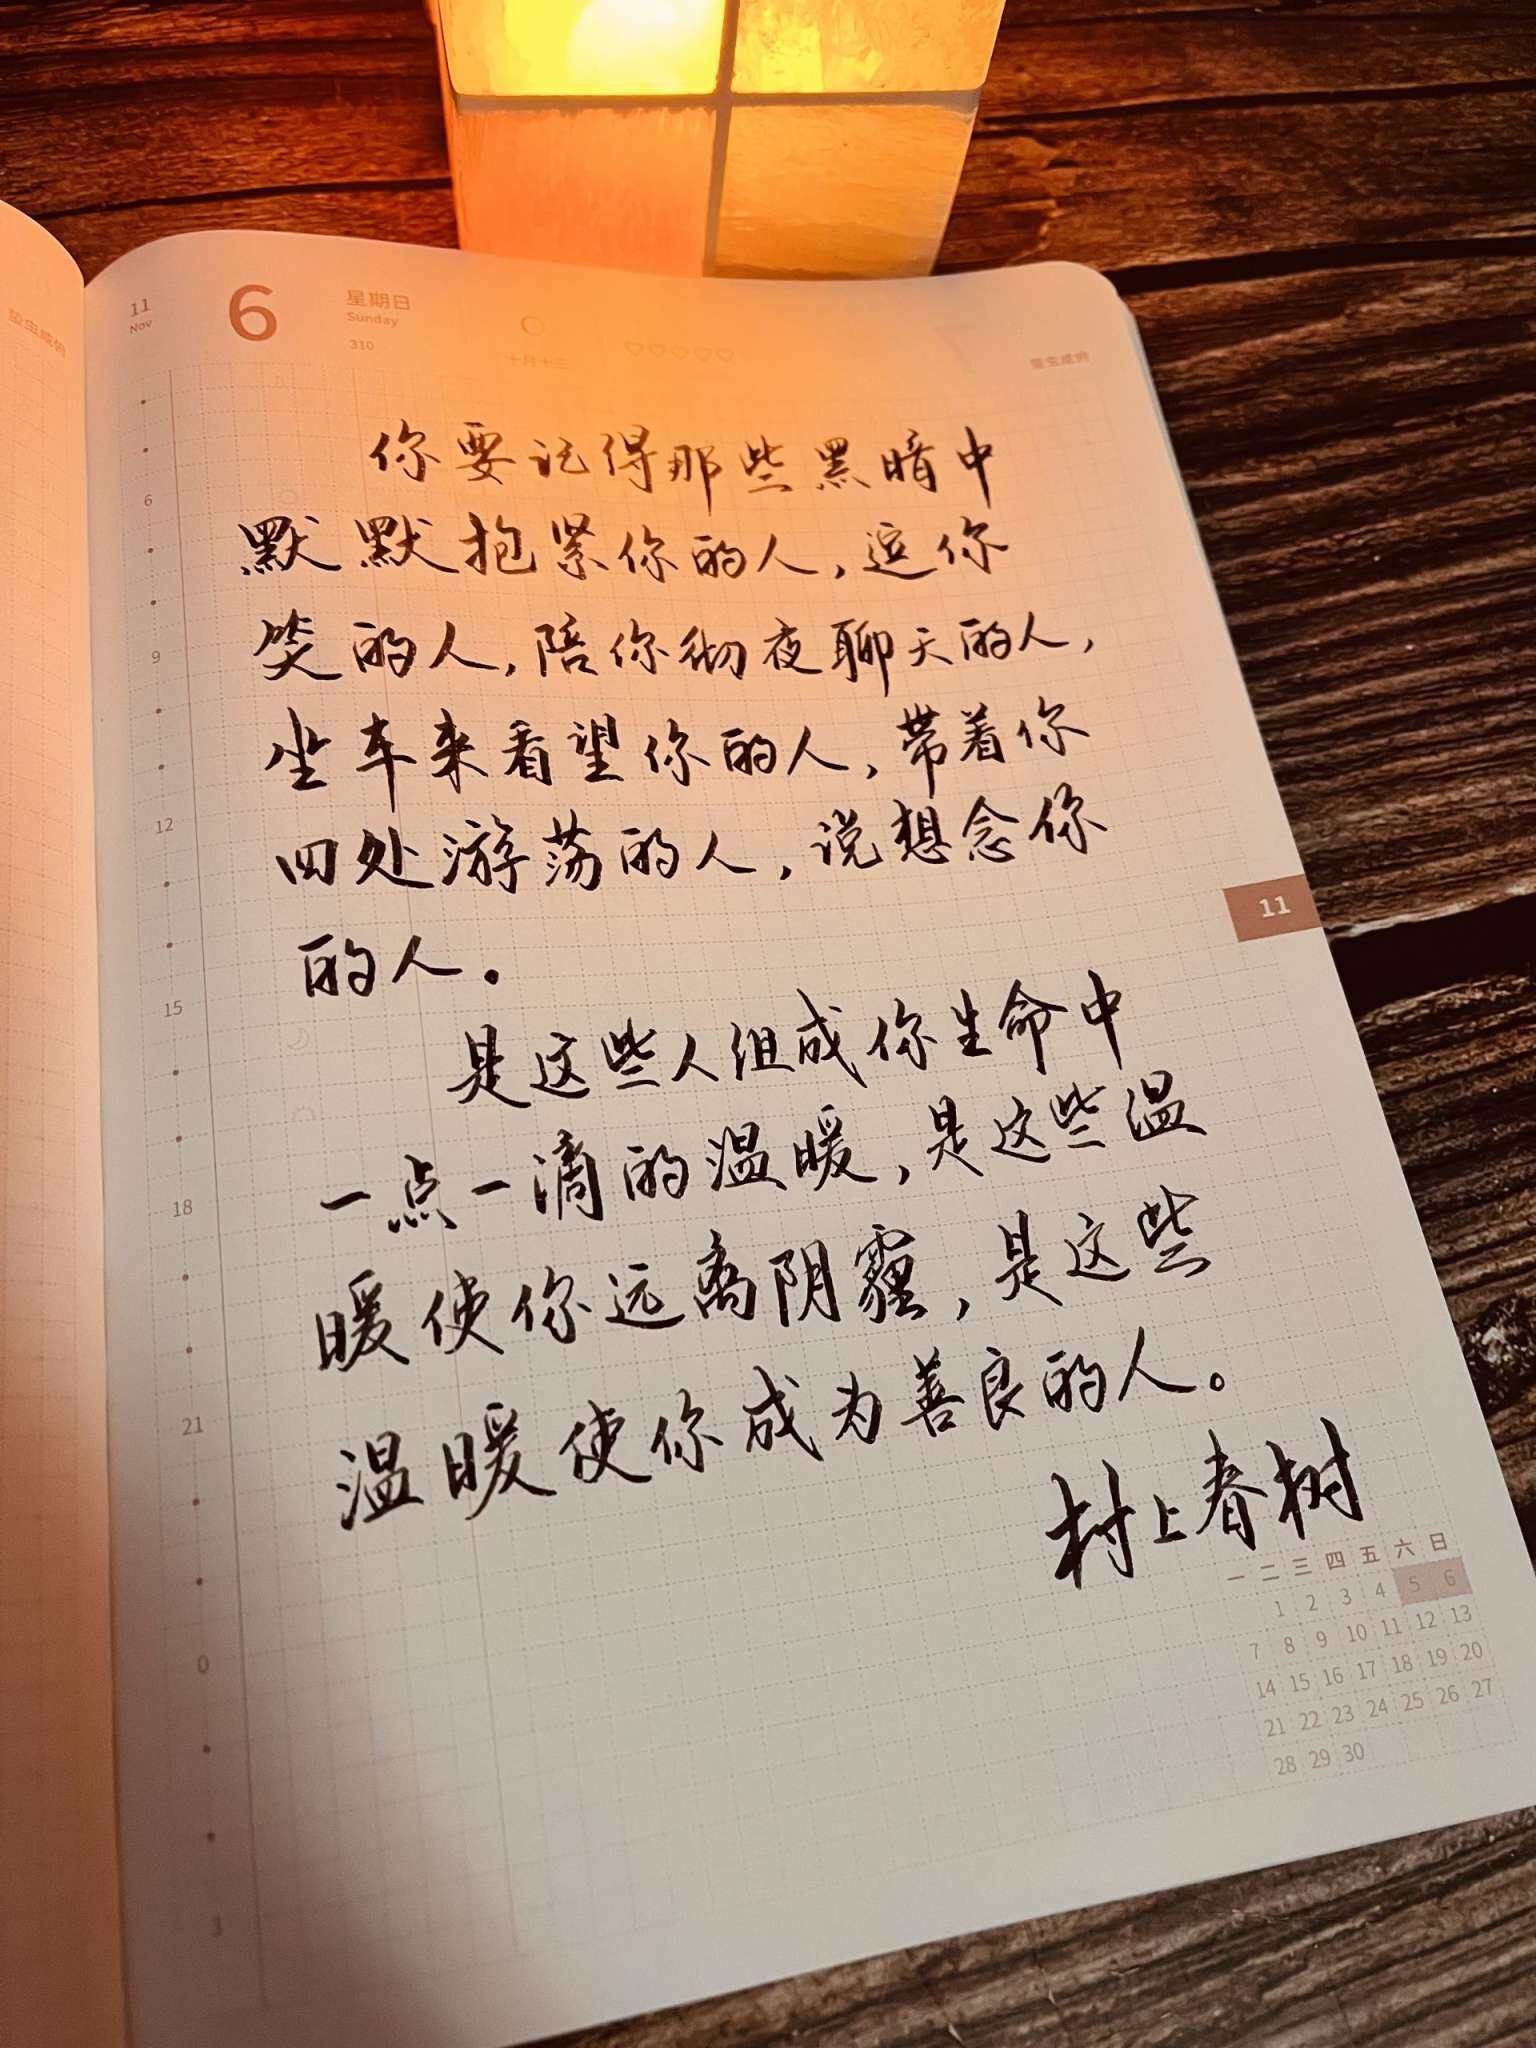 11
Nov
6
星期日
Sunday
310
十月十三
蛰虫咸俯
你要记得那些黑暗中
默默抱紧你的人,逗你
笑的人,陪你彻夜聊天的人,
坐车来看望你的人,带着你
四处游荡的人,说想念你
的人。
是这些人组成你生命中
一点一滴的温暖,是这些温
暖使你远离阴霾,是这些
温暖使你成为善良的人。
村上春树
6
9
12
15
18
21
0
3
11
一 二 三 四 五 六 日
1 2 3 4 5 6
7 8 9 10 11 12 13
14 15 16 17 18 19 20
21 22 23 24 25 26 27
28 29 30